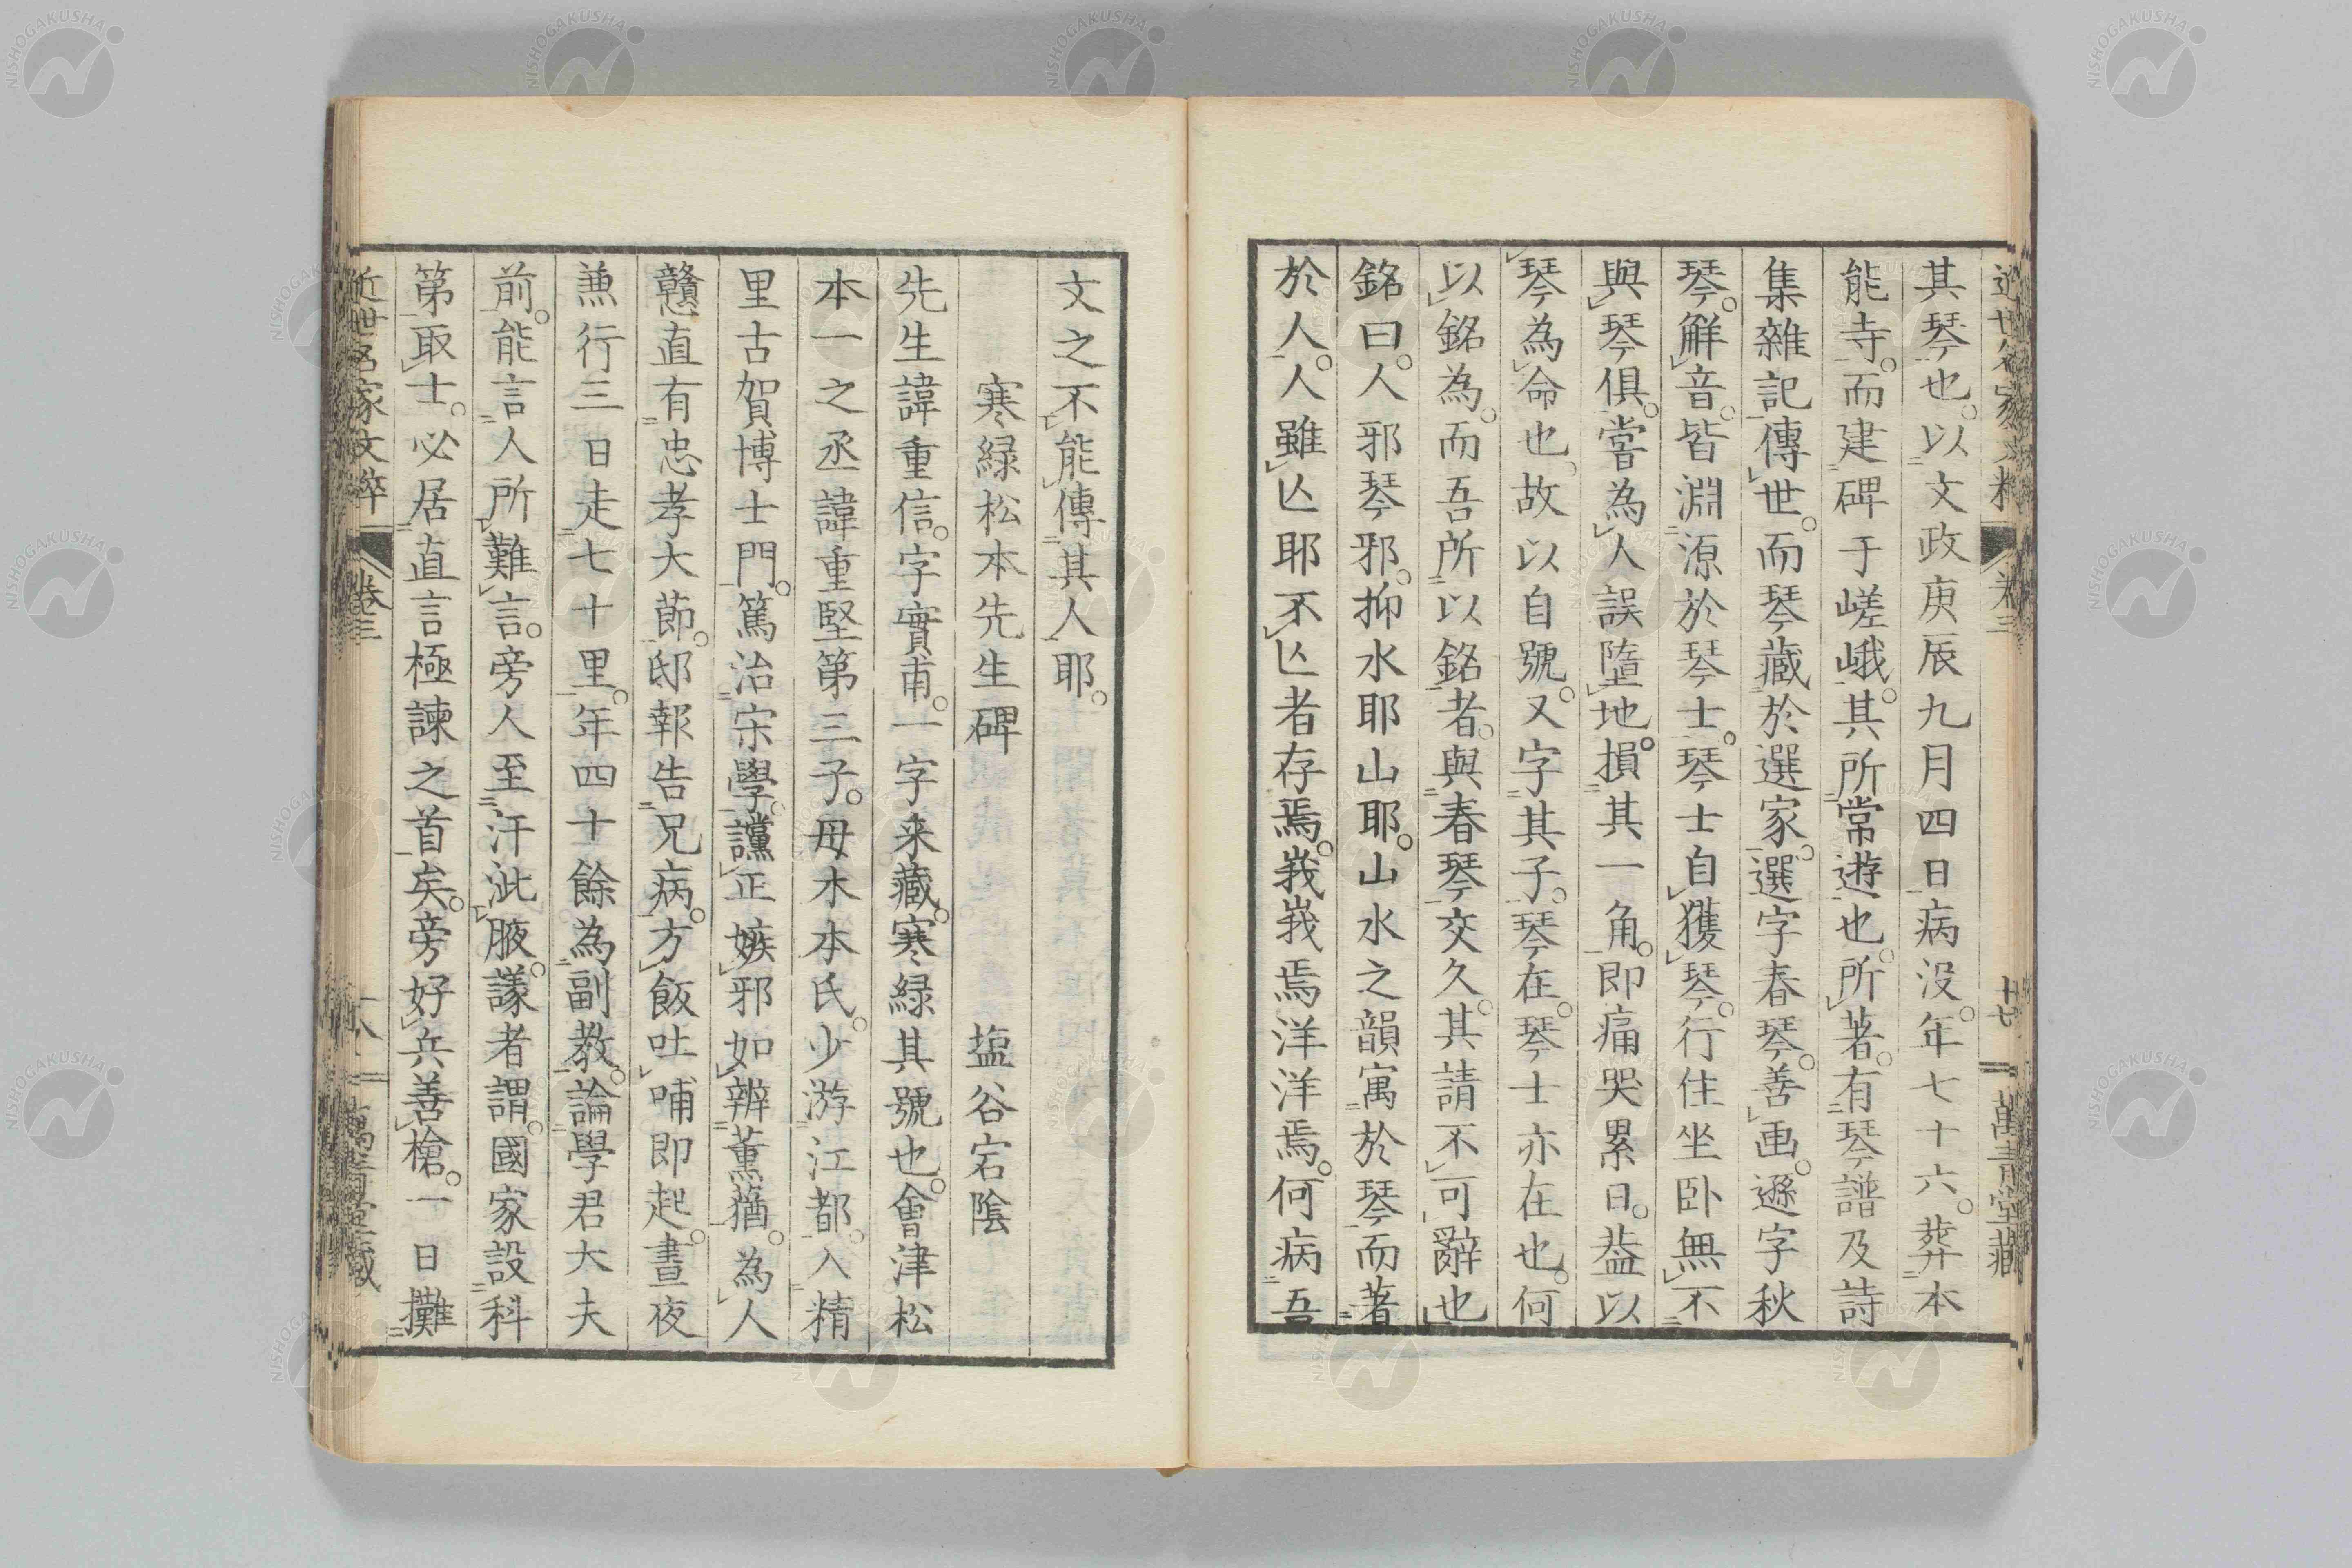 近世名家文粹 卷三 十七 萬青堂藏
其琴也。以文政庚辰九月四日病没。年七十六。葬本
能寺。而建碑于嵯峨。其所常遊也。所著。有琴譜及詩
集雜記傳世。而琴藏於選家。選字春琴。善画。遜字秋
琴。解音。皆淵源於琴士。琴士自獲琴。行住坐卧無不
與琴俱。嘗為人誤墮地損。其一角。即痛哭累日。葢以
琴為命也。故以自號。又字其子。琴在。琴士亦在也。何
以銘為。而吾所以銘者。與春琴交久。其請不可辭也
銘曰。人邪琴邪。抑水耶山耶。山水之韻寓於琴而著
於人。人雖亾耶不亾者存焉。峩峩焉洋洋焉。何病吾
文之不能傳其人耶。
寒綠松本先生碑 塩谷宕陰
先生諱重信。字實甫。一字来藏。寒綠其號也。會津松
本一之丞諱重堅第三子。母木本氏。少游江都。入精
里古賀博士門。篤治宋學。讜正嫉邪如辨薰蕕。為人
戇直有忠孝大節。邸報告兄病。方飯吐哺即起。晝夜
兼行三日走七十里。年四十餘為副教。論學君大夫
前。能言人所難言。旁人至汗泚腋。議者謂。國家設科
第取士。必居直言極諫之首矣。旁好兵善槍。一日攤
近世名家文粹 卷三 十八 萬青堂藏
NISHOGAKUSHA